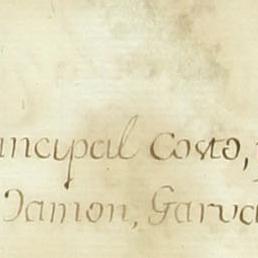 incipal Costo,
Damon, Garva